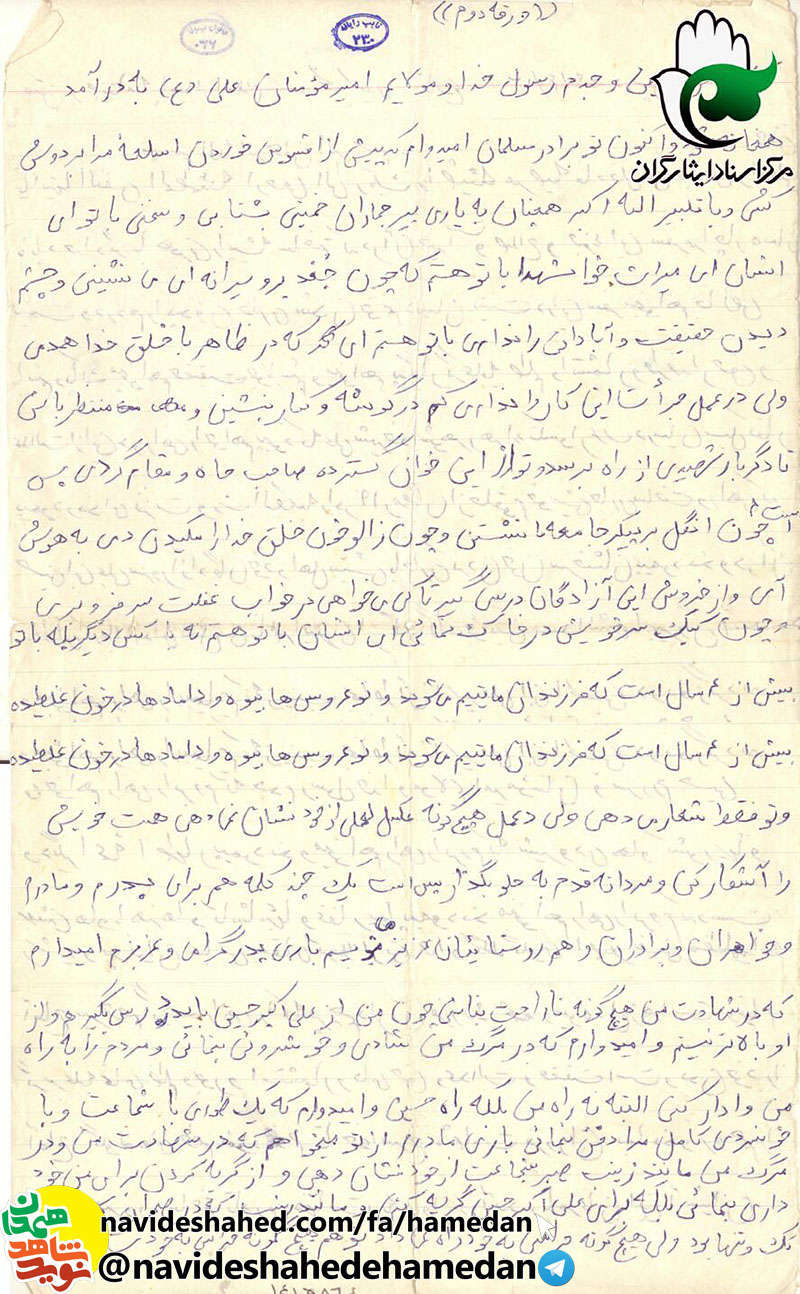 ((ورقه دوم))
تایپ رایانه
۲۳۰
مرکز اسناد ایثارگران
و جدم رسول خدا و مولایم امیر مؤمنان علی (ع) به در آمد
و اکنون تو برادر مسلمان امیدوارم که پیش از افسوس خوردن اسلحه مرا بر دوش
کشی و با تکبیر الله اکبر همچنان به یاری پیر جماران خمینی بشتابی و سخنی با تو ای
انسان ای میراث خوار شهدا با تو هستم که چون جغد بر ویرانه ای می نشینی و چشم
دیدن حقیقت و آبادانی را نداری با تو هستم ای که در ظاهر با خلق خدا همدمی
ولی در عمل جرأت این کار را نداری کم در گوشه و کنار بنشین و منتظر باش
تا دگر بار شهیدی از راه برسد و تو از این خوان گسترده صاحب جاه و مقام گردی بس
است چون انگل بر پیکر جامعه ما نشستن و چون زالو خون خلق خدا را مکیدن دمی به هوش
آی و از خروش این آزادگان درس گیر تا کی می خواهی در خواب غفلت سر فرو بری
و چون کبک سر خویش در خاک نمائی ای انسان با تو هستم نه با کس دیگر بلکه با تو
بیش از ۴ سال است که فرزندان ما یتیم می شوند و نوعروس ها بیوه و دامادها در خون غلطیده
بیش از ۴ سال است که فرزندان ما یتیم می شوند و نوعروس ها بیوه و دامادها در خون غلطیده
و تو فقط شعار می دهی ولی در عمل هیچگونه عکس العملی از خود نشان نمی دهی همت خویش
را آشکار کن و مردانه قدم به جلو بگذار بس است یک چند کلمه هم برای پدرم و مادرم
و خواهران و برادران و هم روستائیان عزیز بنویسم باری پدر گرامی و عزیزم امیدوارم
که در شهادت من هیچگونه ناراحت نباشی چون من از علی اکبر حسین باید درس بگیرم و از
او بالاتر نیستم و امیدوارم که در مرگ من شادی و خوشروئی بنمائی و مردم را به راه
من وادار کنی البته نه راه من بلکه راه حسین و امیدوارم که یک طوری با شجاعت و با
خونسردی کامل مرا دفن بنمائی باری مادرم از تو میخواهم که در شهادت من و در
مرگ من مانند زینب صبر شجاعت از خود نشان دهی و از گریه کردن برای من خود
داری بنمائی بلکه برای علی اکبر حسین گریه کنی و مانند زینب که در صحرای
تک و تنها بود ولی هیچ گونه به خود راه نداد تو هم هیچ گونه به خود
navideshahed.com/fa/hamedan
@navideshahedehamedan
نوید شاهد همدان